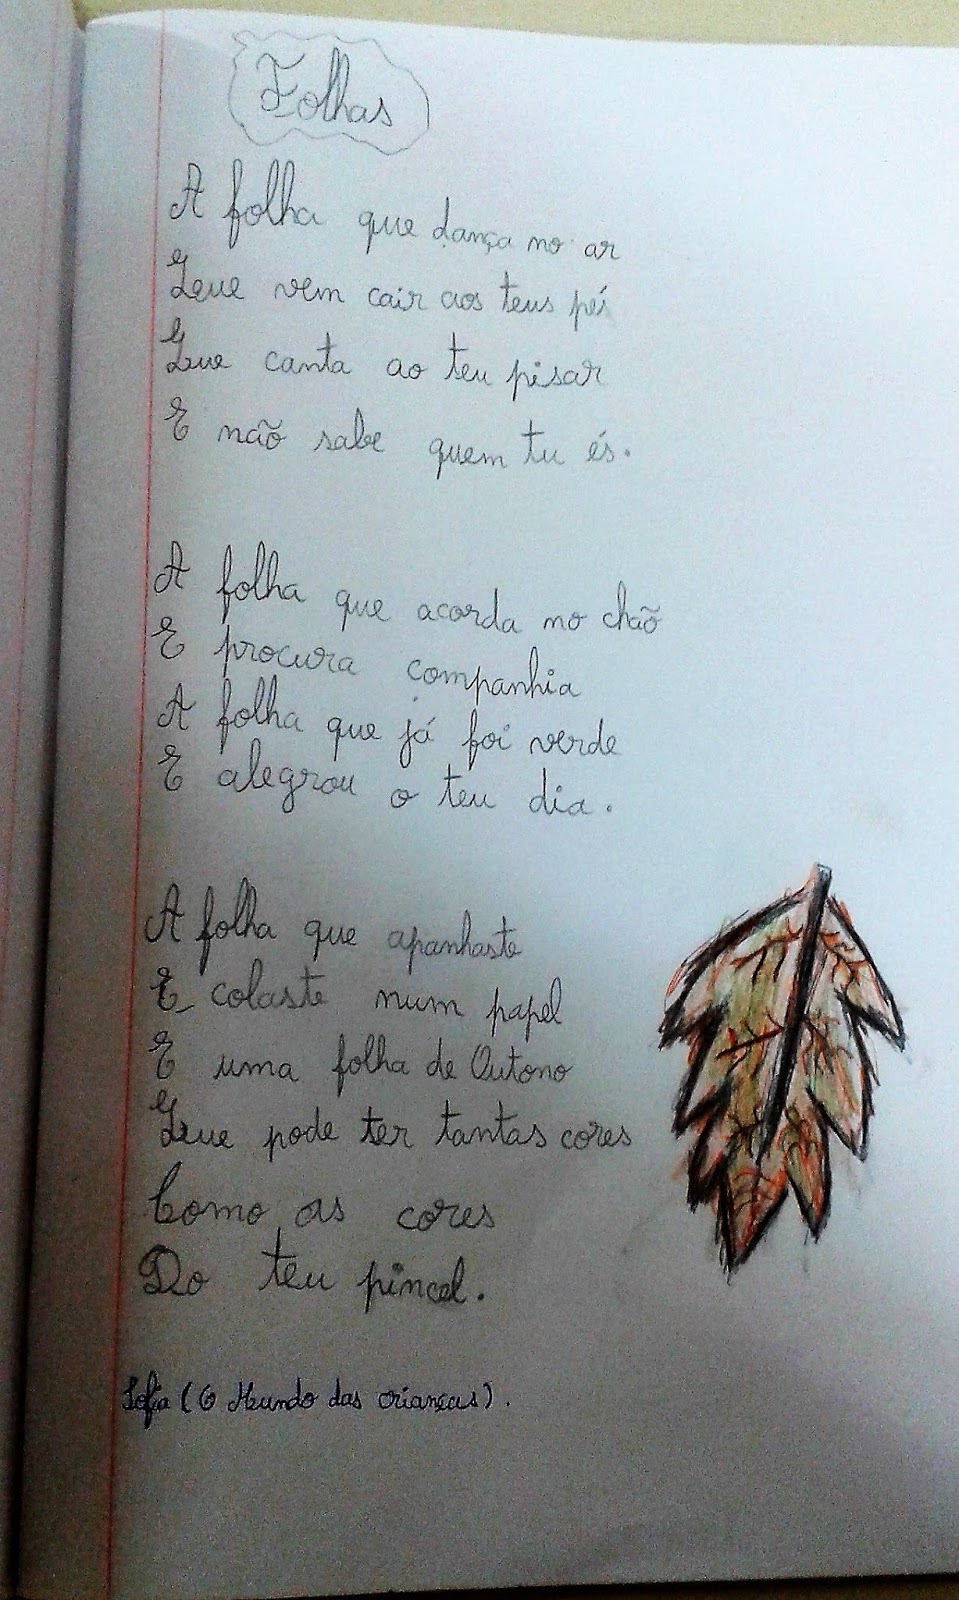 Folhas
A folha que dança no ar
Que vem cair aos teus pés
Que canta ao teu pisar
E não sabe quem tu és.
A folha que acorda no chão
E procura companhia
A folha que já foi verde
E alegrou o teu dia.
A folha que apanhaste
E colaste num papel
E uma folha de Outono
Que pode ter tantas cores
Como as cores
Do teu pincel.
Sofia (O Mundo das crianças).